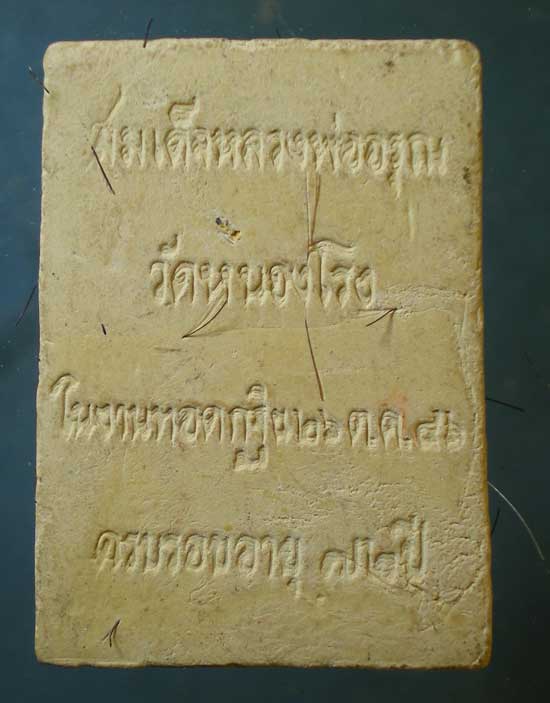 สมเด็จหลวงพ่ออรุณ
วัดหนองโรง
ในงานทอดกฐิน๒๖ ต.ค.๔๖
ครบรอบอายุ ๗๒ปี